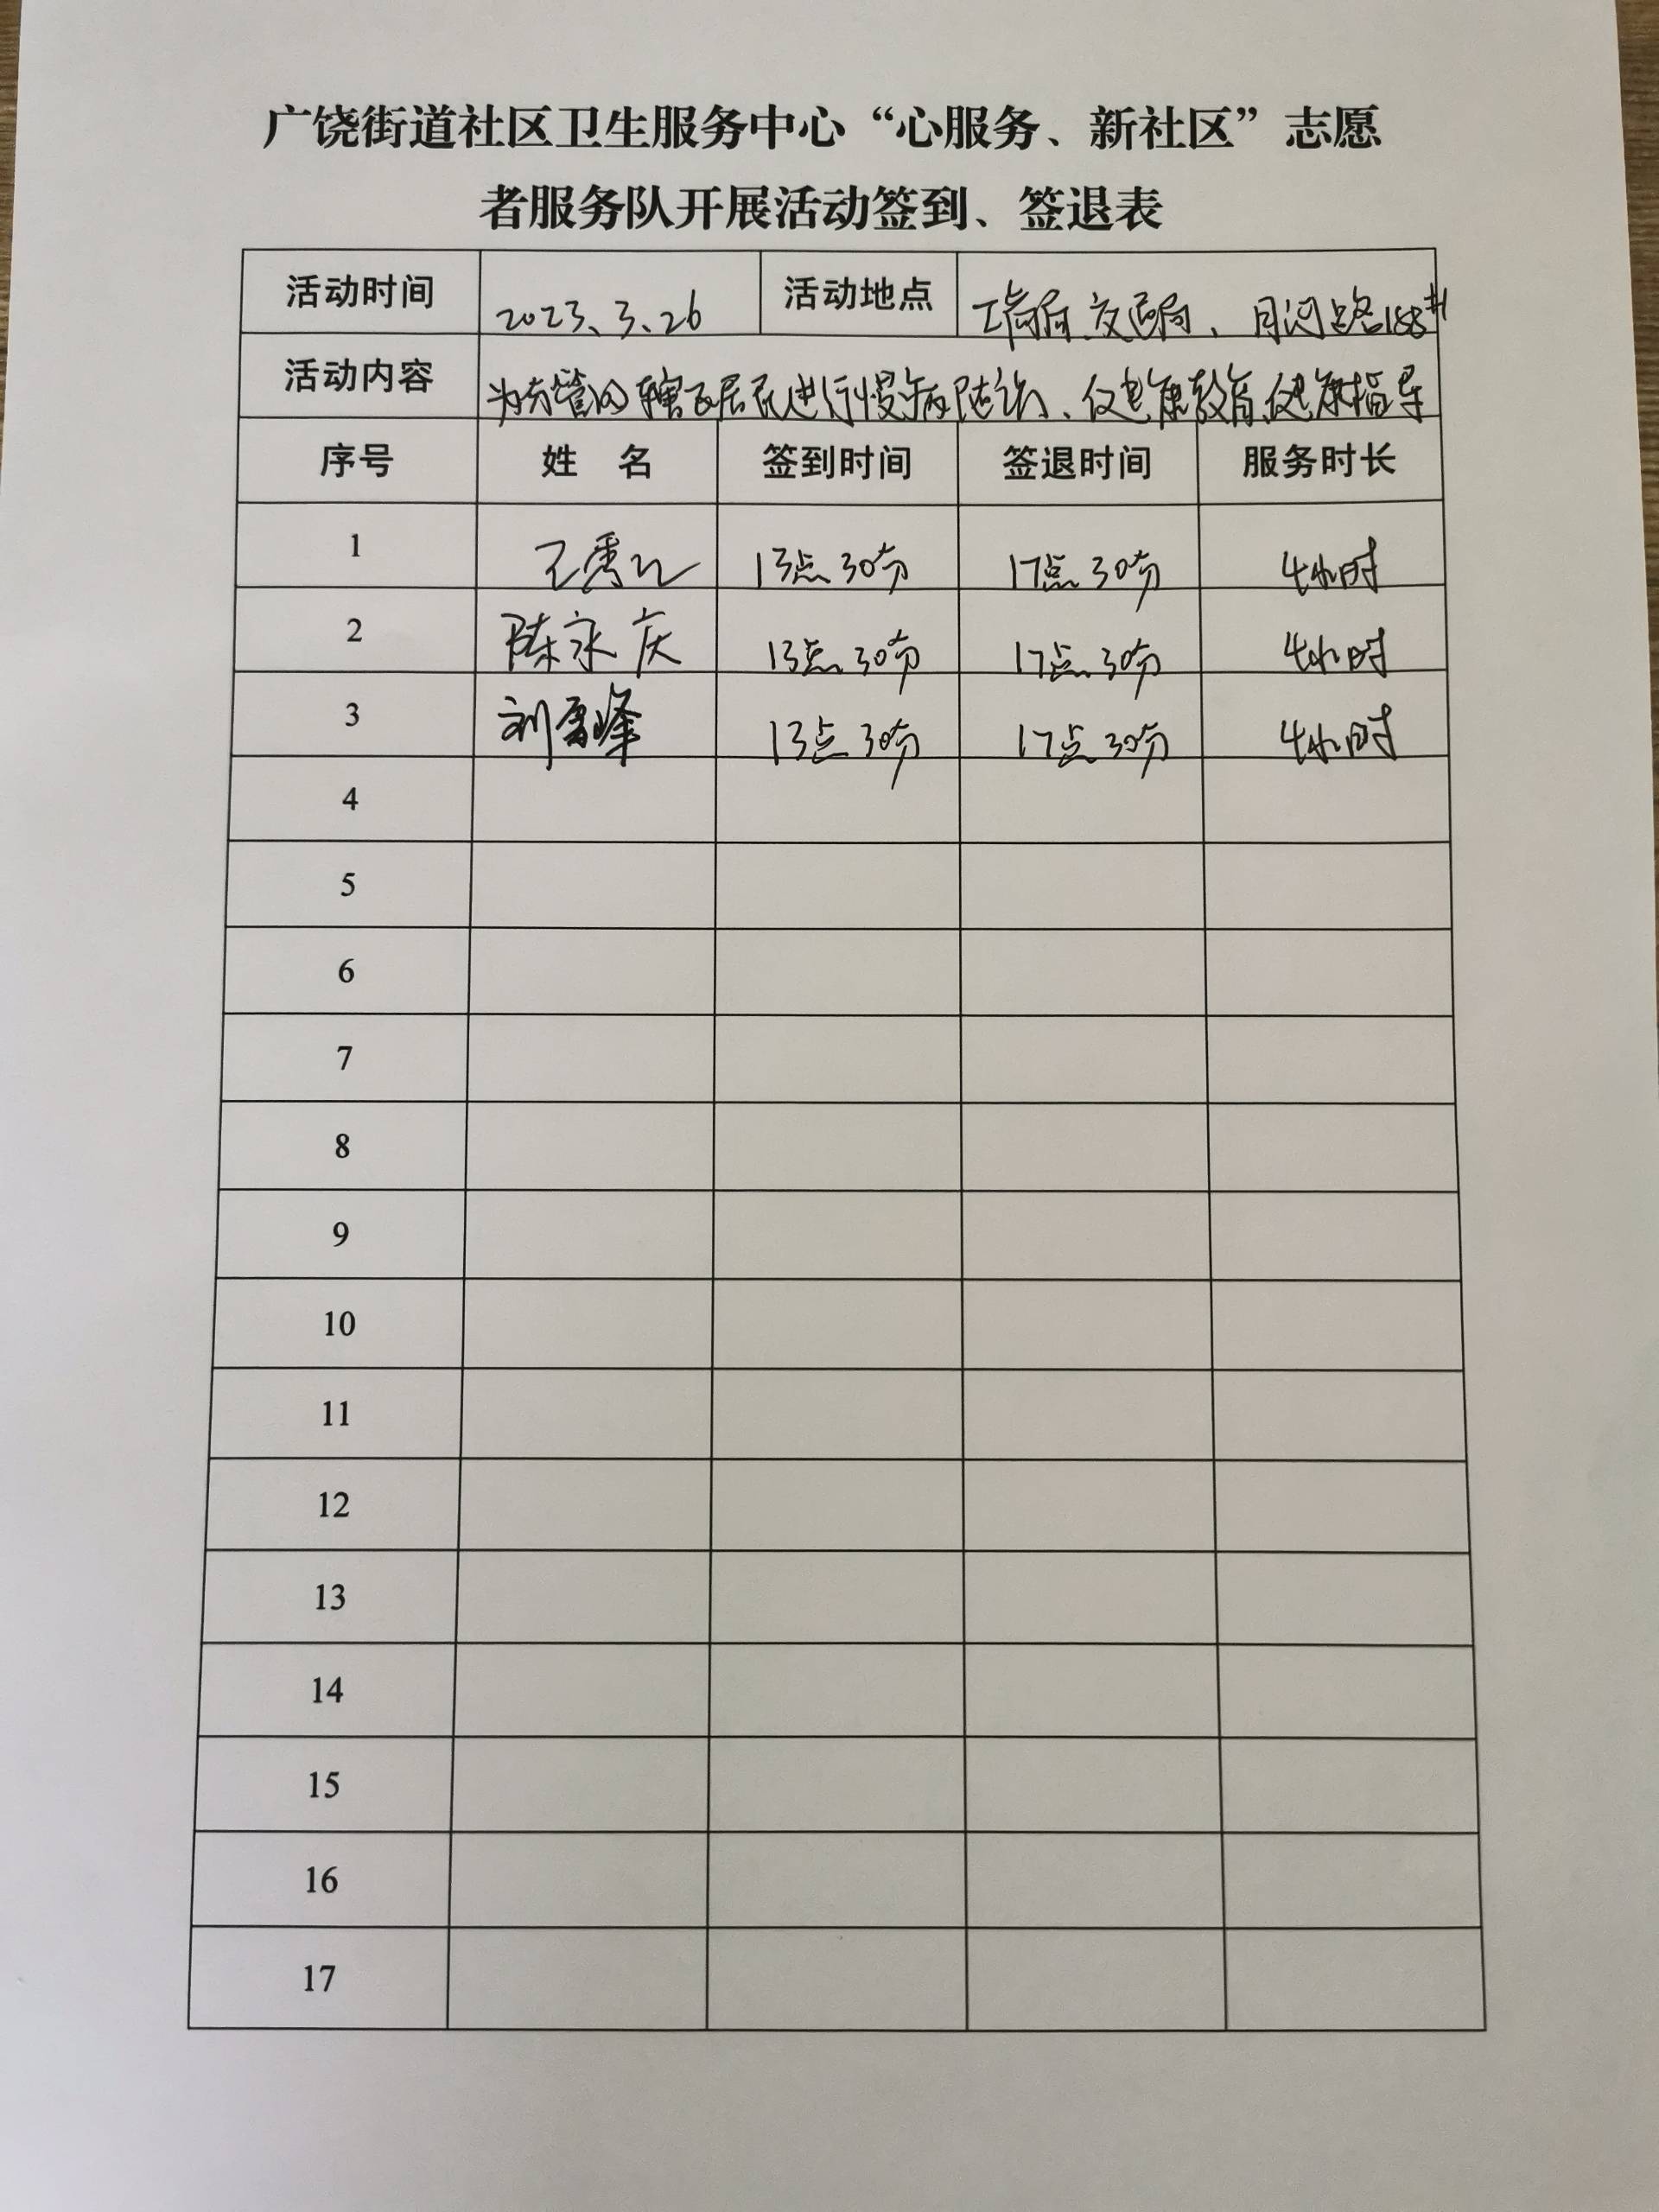 广饶街道社区卫生服务中心“心服务、新社区”志愿
者服务队开展活动签到、签退表
活动时间 2023.3.26 活动地点 工商局、交通局、月河路188#
活动内容 为所管的辖区居民进行慢病随访、健康教育、健康指导
序号 姓 名 签到时间 签退时间 服务时长
1 王秀 13点30分 17点30分 4小时
2 陈永庆 13点30分 17点30分 4小时
3 刘雪峰 13点30分 17点30分 4小时
4
5
6
7
8
9
10
11
12
13
14
15
16
17